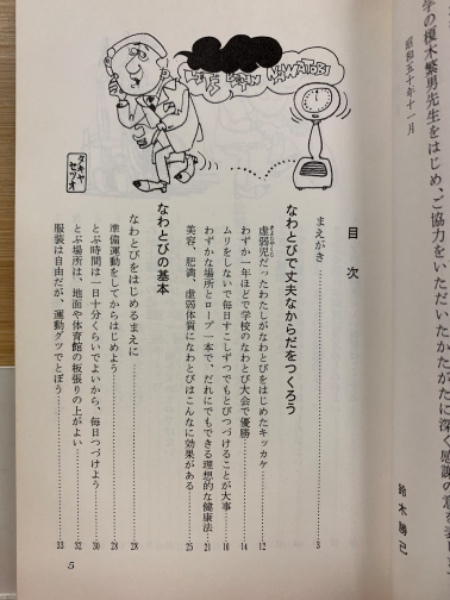 学の榎木繁男先生をはじめ、ご協力をいただいたかたがたに深く感謝の意を表し
昭和五十年十一月
鈴木勝己
LET'S BEGIN NAWATOBI
タキヤセツオ
目次
まえがき 3
なわとびで丈夫なからだをつくろう
虚弱児だったわたしがなわとびをはじめたキッカケ 12
わずか一年ほどで学校のなわとび大会で優勝 14
ムリをしないで毎日すこしずつでもとびつづけることが大事 16
わずかな場所とロープ一本で、だれにでもできる理想的な健康法 21
美容、肥満、虚弱体質になわとびはこんなに効果がある 25
なわとびの基本
なわとびをはじめるまえに 28
準備運動をしてからはじめよう 28
とぶ時間は一日十分くらいでよいから、毎日つづけよう 30
とぶ場所は、地面や体育館の板張りの上がよい 32
服装は自由だが、運動グツでとぼう 33
5